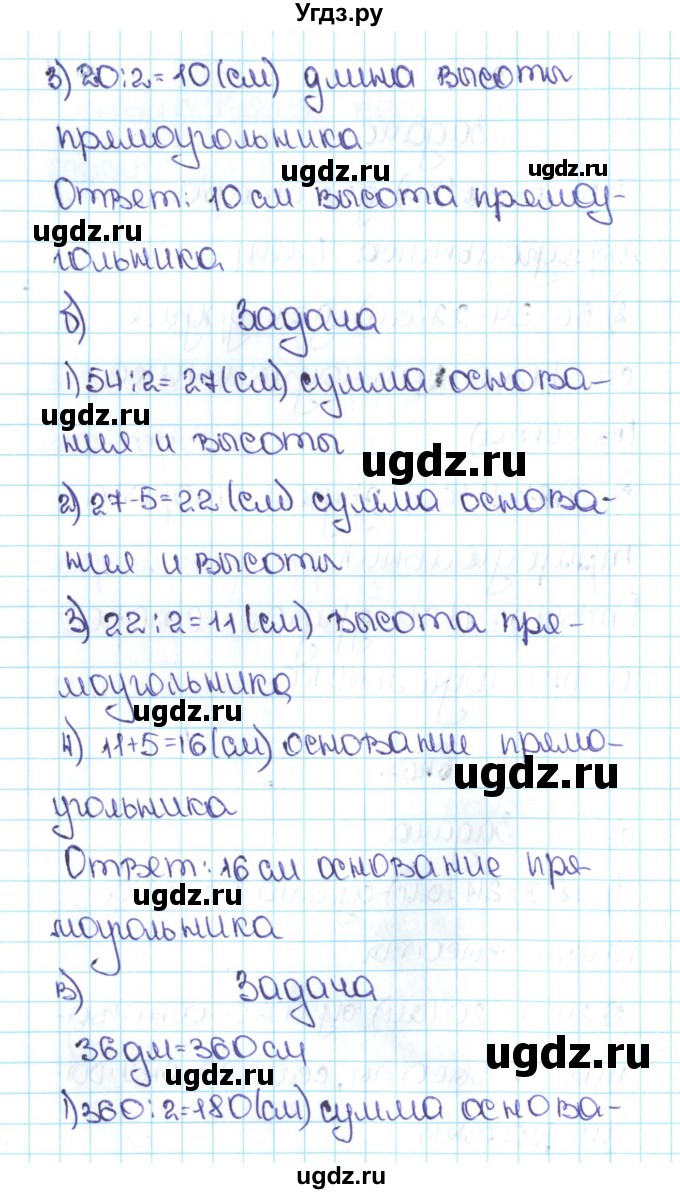 Угдз.ру
3) 20:2=10(см) длина высоты
прямоугольника
ugdz.ru
ugdz.ru
Ответ: 10 см высота прямоу-
ugdz.ru
гольника
б) Задача
1) 54:2=27(см) сумма основа-
ugdz.ru
ния и высоты
ugdz.ru
2) 27-5=22(см) сумма основа-
ния и высоты
3) 22:2=11(см) высота пря-
моугольника
ugdz.ru
4) 11+5=16(см) основание прямо-
ugdz.ru
угольника
Ответ: 16 см основание пря-
ugdz.ru
моугольника
в) Задача
36дм=360см
ugdz.ru
ugdz.ru
1) 360:2=180(см) сумма основа-
ugdz.ru